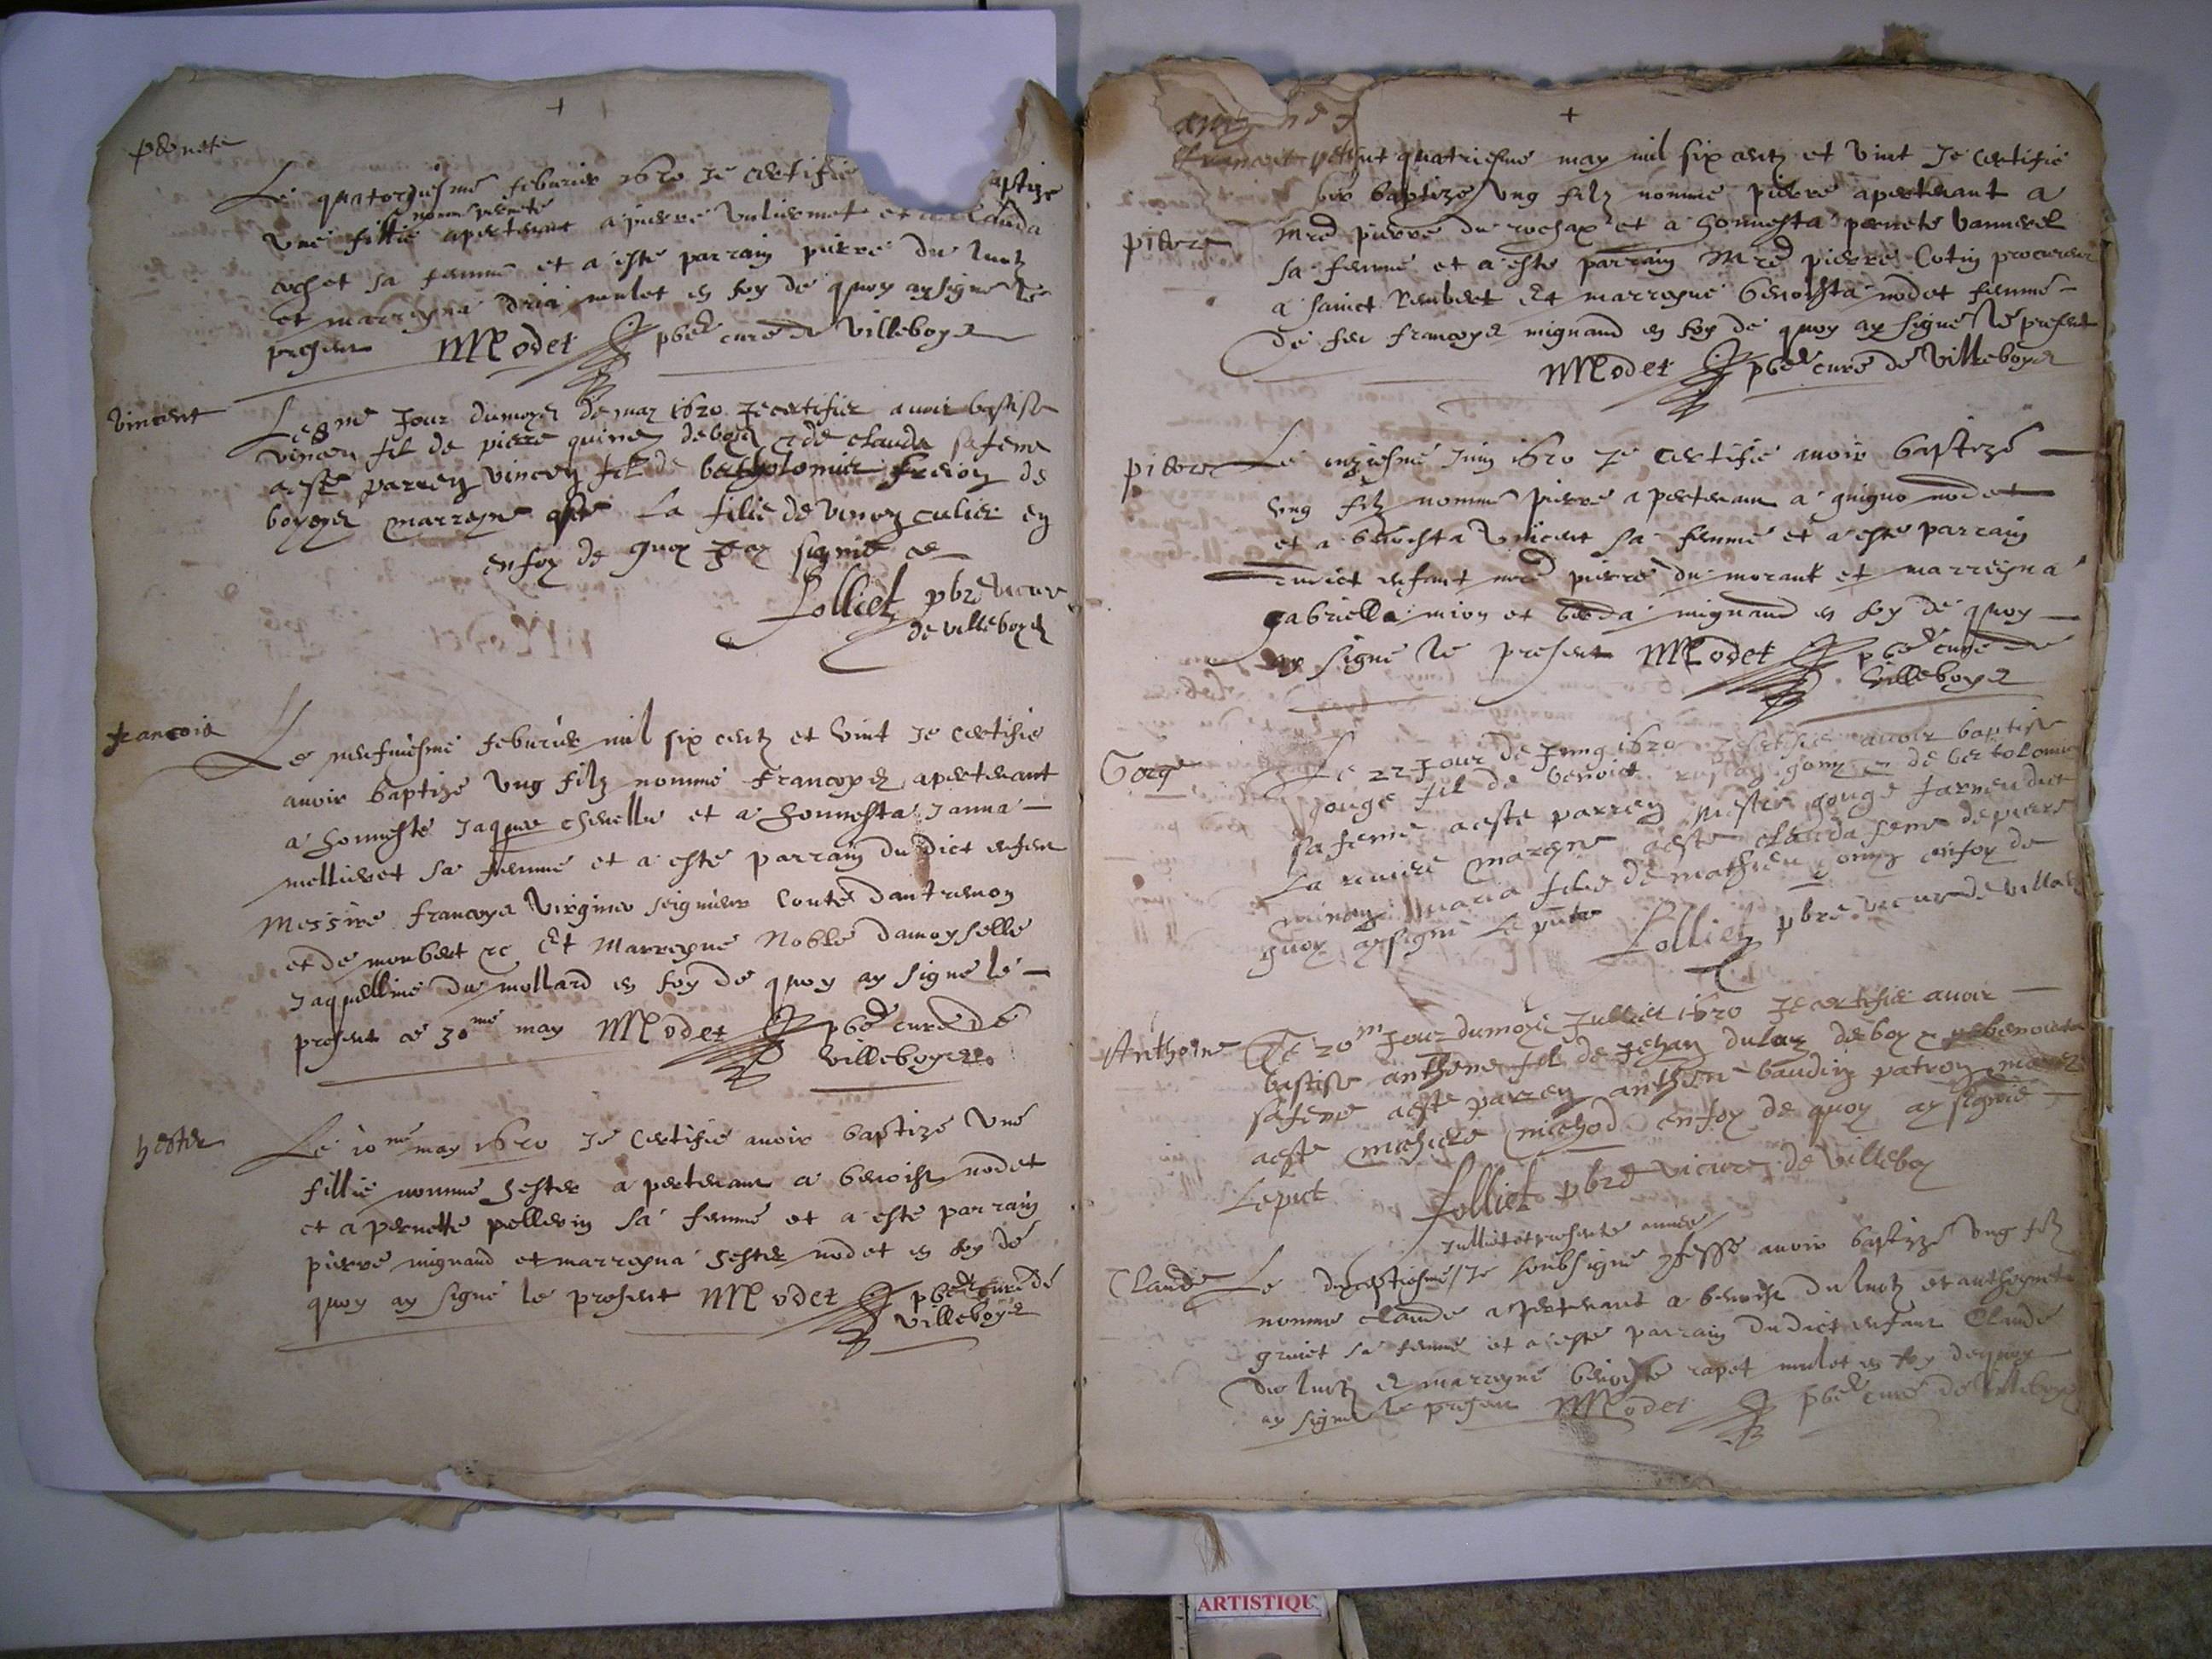 pernete
Le quatorziesme febvrier 1620 Je certifie aptize
nomme pernete
Une fillie apertenant a pierre Vuliermet et a Clauda
cochet sa femme et a este parrain pierre du lutz
et marreyna mulet en foy de quoy ay signe le
present MModet pbre cure de Villeboys
Vincent
Le 8me Jour du moys de mar 1620 Je certifie avoir baptise
vincen fil de pierre quinen de boys et de clauda sa feme
aeste parren vincen fil de bertholomier de
boyeys marreyne aste La filie de vincen culier en
en foy de quoy Jay signe ce
Lolliet pbre vicure
de villeboys
francois
Le neufviesme febvrier mil six centz et vint Je certifie
avoir baptize Ung filz nomme Francoys apertenant
a honneste Jaques chevellu et a honnesta Janna
mellieret sa femme et a este parrain du dict enfan
Messire francoys Virgines seigneur Conte dantremon
et de monbert &c Et Marreyne Noble damoyselle
Jaquelline du mollard en foy de quoy ay signe le
present ce 30me may MModet pbre cure de
Villeboys
hester
Le 10me may 1620 Je Certifie avoir baptize Une
fillie nomme hester apertenant a benoist nodet
et a pernette pellerin sa femme et a este parrain
pierre mignand et marreyna hester nodet en foy de
quoy ay signe le present MModet pbre cure de
villeboys
vint quatriesme may mil six centz et vint Je certifie
baptize Ung filz nomme pierre apertenant a
pierre
Mre pierre du rochax et a honnesta pernete vannerel
sa femme et a este parrain Mre pierre Cotin procureur
a sainct Rembert Et marreyne benoista nodet femme
de feu francoys mignand en foy de quoy ay signe le present
MModet pbre cure de Villeboys
pierre
Le unziesme Juin 1620 Je Certifie avoir baptize
Ung filz nomme pierre apertenant a guigno nodet
et a benoista Vincent sa femme et a este parrain
dudict enfant mre pierre du morant et marreyna
gabriella mion et mignand en foy de quoy
ay signe le present MModet pbre cure de
Villeboys
Gorge
Le 22 Jour de Jung 1620 Je certifie avoir baptise
gouge fil de benoict gonin et de bertolomie
sa feme aeste parren mestre gouge
La riviere mareyne aeste clauda feme de pierre
maria filie de mathieu gonin en foy de
quoy ay signe le pnt Lolliet pbre vicure de villeb
Anthoine
Le 20m Jour du moys Julliet 1620 Je certifie avoir
baptise anthone fil de Jehan dulau de boy et benoiata
sa feme aeste parren anthone baudin patron mare
aeste michiele michod en foy de quoy ay signie
Le pnt Lolliet pbre vicure de villeboy
Julliet et presente annee
Claude
Le dixseptiesme Je soubsigne confesse avoir baptize Ung filz
nomme Claude apertenant a benoist du lutz et anthoynete
griot sa femme et a este parrain dudict enfant Claude
du lutz et marreyne benoiste rapet mulet en foy de quoy
ay signe le present MModet pbre cure de Villeboys
ARTISTIQU